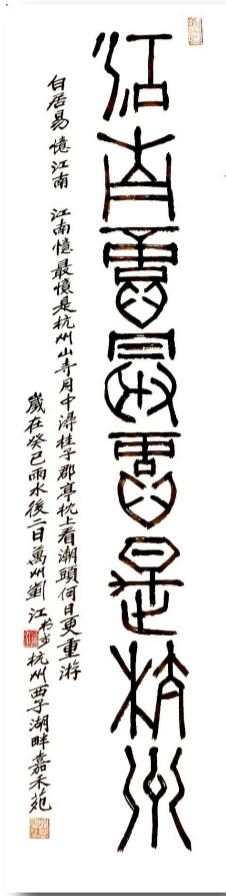 江南憶最憶是杭州
白居易憶江南 江南憶最憶是杭州山寺月中潯桂子郡亭枕上看潮頭何日更重游
歲在癸巳雨水後二日萬州劉江 杭州西子湖畔嘉禾苑